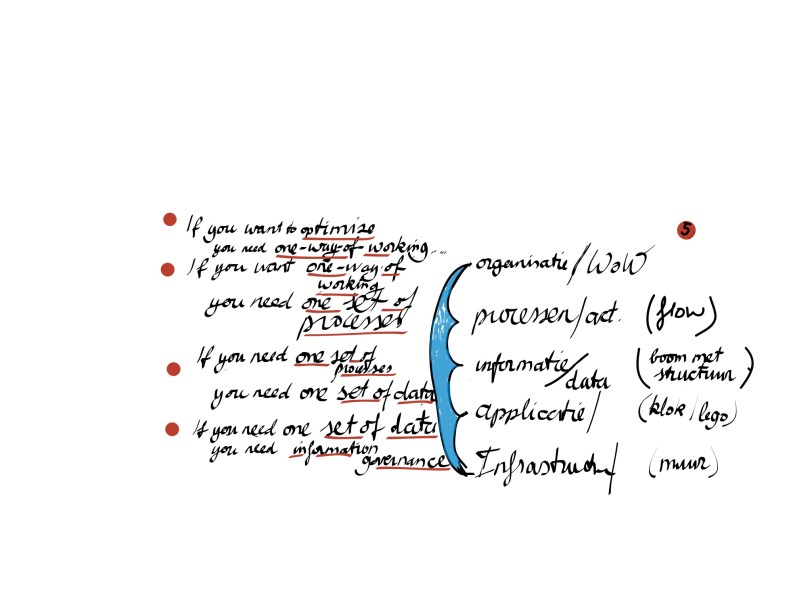 If you want to optimize
you need one-way-of-working....
If you want one-way-of
working
you need one set of
processes
If you need one set of
processes
you need one set of data
If you need one set of data
you need information
governance
5
organisatie/WoW
processen/act. (flow)
informatie/data (boom met
structuur)
applicatie/ (klok/lego)
(muur)